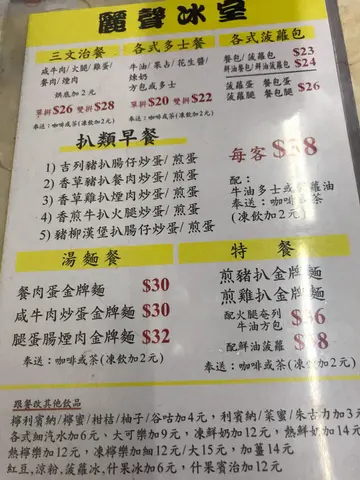 麗聲冰室
三文治餐
咸牛肉/火腿/雞蛋/
餐肉/煙肉
烘底加2元
單拼$26 雙拼$28
奉送:咖啡或茶(凍飲加2元)
各式多士餐
牛油/果占/花生醬/
煉奶
方包或多士
單拼$20 雙拼$22
奉送:咖啡或茶(凍飲加2元)
各式菠蘿包
餐包/菠蘿包 $23
鮮油餐包/鮮油菠蘿包 $24
菠蘿蛋 餐包蛋
菠蘿腿 餐包腿 $26
奉送:咖啡或茶(凍飲加2元)
扒類早餐
1)吉列豬扒腸仔炒蛋/煎蛋
2)香草豬扒餐肉炒蛋/煎蛋
3)香草雞扒煙肉炒蛋/煎蛋
4)香煎牛扒火腿炒蛋/煎蛋
5)豬柳漢堡扒腸仔炒蛋/煎蛋
每客 $38
配:
牛油多士或
油
奉送:咖啡
茶
(凍飲加2元)
湯麵餐
餐肉蛋金牌麵 $30
咸牛肉炒蛋金牌麵 $30
腿蛋腸煙肉金牌麵 $32
奉送:咖啡或茶(凍飲加2元)
特餐
煎豬扒金牌麵
煎雞扒金牌麵
配火腿奄列
牛油方包 $36
配鮮油菠蘿 $38
奉送:咖啡或茶(凍飲加2元)
跟餐改其他飲品
檸利賓納/檸蜜/柑桔/柚子/谷咕加4元,利賓納/菜蜜/朱古力加3元
各式細汽水加6元、大可樂加9元,凍鮮奶加12元,熱鮮奶加14元
熱檸樂加12元,凍檸樂加細12元/大15元,加薑14元
紅豆,涼粉,菠蘿冰,什果冰加6元,什果賓治加12元